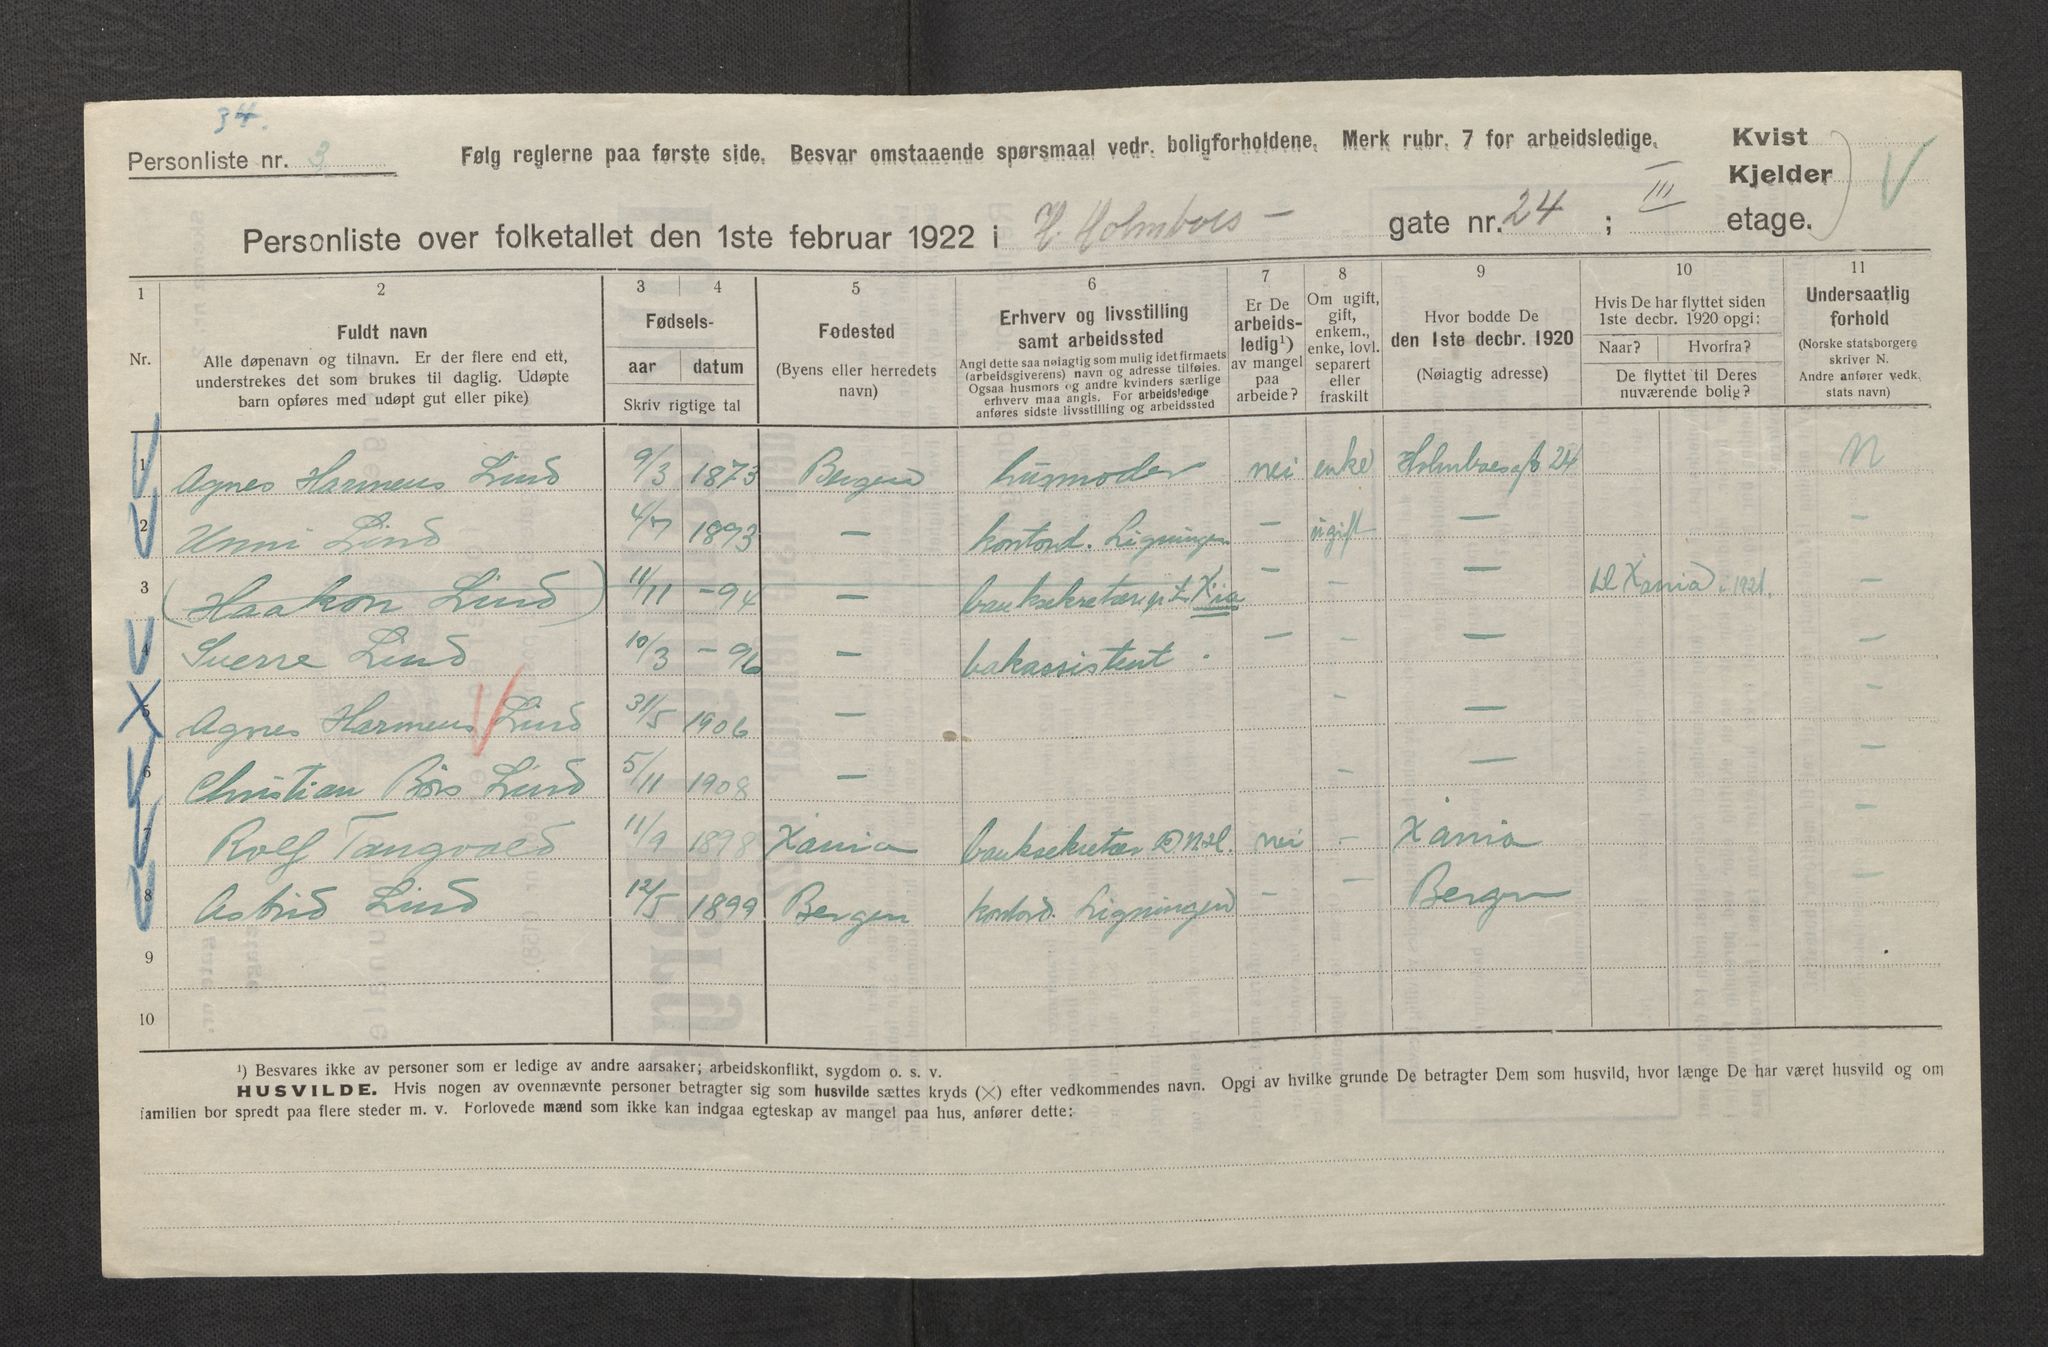 34.
Personliste nr. 3
Følg reglerne paa første side. Besvar omstaaende spørsmaal vedr. boligforholdene. Merk rubr. 7 for arbeidsledige.
Kvist
Kjelder
Personliste over folketallet den 1ste februar 1922 i H. Holmboes - gate nr. 24 ; III etage.
1 2 3 4 5 6 7 8 9 10 11
Nr.
Fuldt navn
Alle døpenavn og tilnavn. Er der flere end ett,
understrekes det som brukes til daglig. Udøpte
barn opføres med udøpt gut eller pike)
Fødsels-
aar datum
Skriv rigtige tal
Fødested
(Byens eller herredets
navn)
Erhverv og livsstilling
samt arbeidssted
Angi dette saa nøiagtig som mulig idet firmaets
(arbeidsgiverens) navn og adresse tilføies.
Ogsaa husmors og andre kvinders særlige
erhverv maa angis. For arbeidsledige
anføres sidste livsstilling og arbeidssted
Er De
arbeids-
ledig¹)
av mangel
paa
arbeide?
Om ugift,
gift,
enkem.,
enke, lovl.
separert
eller
fraskilt
Hvor bodde De
den 1ste decbr. 1920
(Nøiagtig adresse)
Hvis De har flyttet siden
1ste decbr. 1920 opgi:
Naar? Hvorfra?
De flyttet til Deres
nuværende bolig?
Undersaatlig
forhold
(Norske statsborgere
skriver N.
Andre anfører vedk.
stats navn)
1 Agnes Harmens Lind 9/3 1873 Bergen husmoder nei enke Holmboesgt 24 N
2 Unni Lind 4/7 1893 — kontord. Ligningen — ugift — —
3 (Haakon Lind) 11/11 -94 — banksekretær Xia — — — til Xania i 1921. —
4 Sverre Lind 10/3 -96 — bakassistent . — — — —
5 Agnes Harmens Lind 31/5 1906 — — — —
6 Christian Børs Lind 5/11 1908 — — — —
7 Rolf Tangvald 11/9 1898 Xania banksekretær nei — Xania —
8 Astrid Lind 12/5 1899 Bergen kontord. Ligningen — — Bergen —
9
10
¹) Besvares ikke av personer som er ledige av andre aarsaker; arbeidskonflikt, sygdom o. s. v.
HUSVILDE. Hvis nogen av ovennævnte personer betragter sig som husvilde sættes kryds (X) efter vedkommendes navn. Opgi av hvilke grunde De betragter Dem som husvild, hvor længe De har været husvild og om
familien bor spredt paa flere steder m. v. Forlovede mænd som ikke kan indgaa egteskap av mangel paa hus, anfører dette: